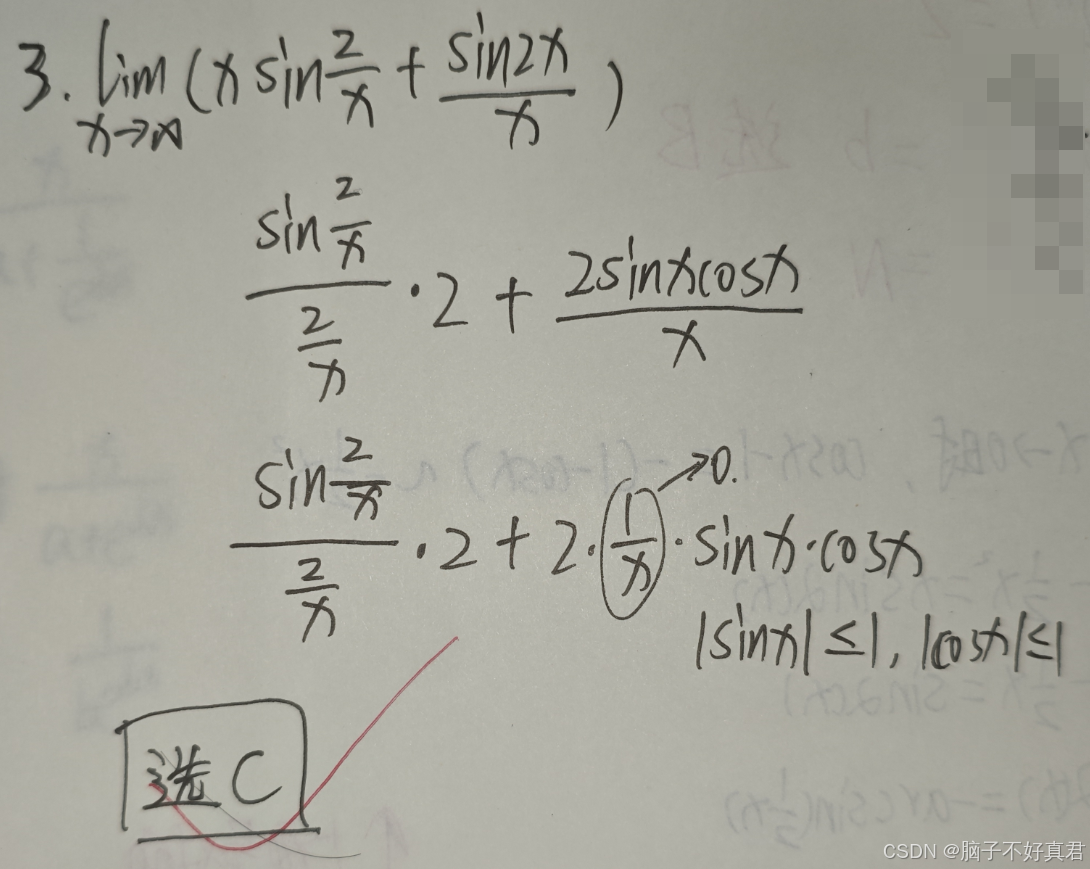 3. lim (x sin 2/x + sin2x/x)
x→∞
sin 2/x / 2/x · 2 + 2sinxcosx/x
→0.
sin 2/x / 2/x · 2 + 2 · 1/x · sinx · cosx
|sinx| ≤ 1, |cosx| ≤ 1
选 C
CSDN @脑子不好真君